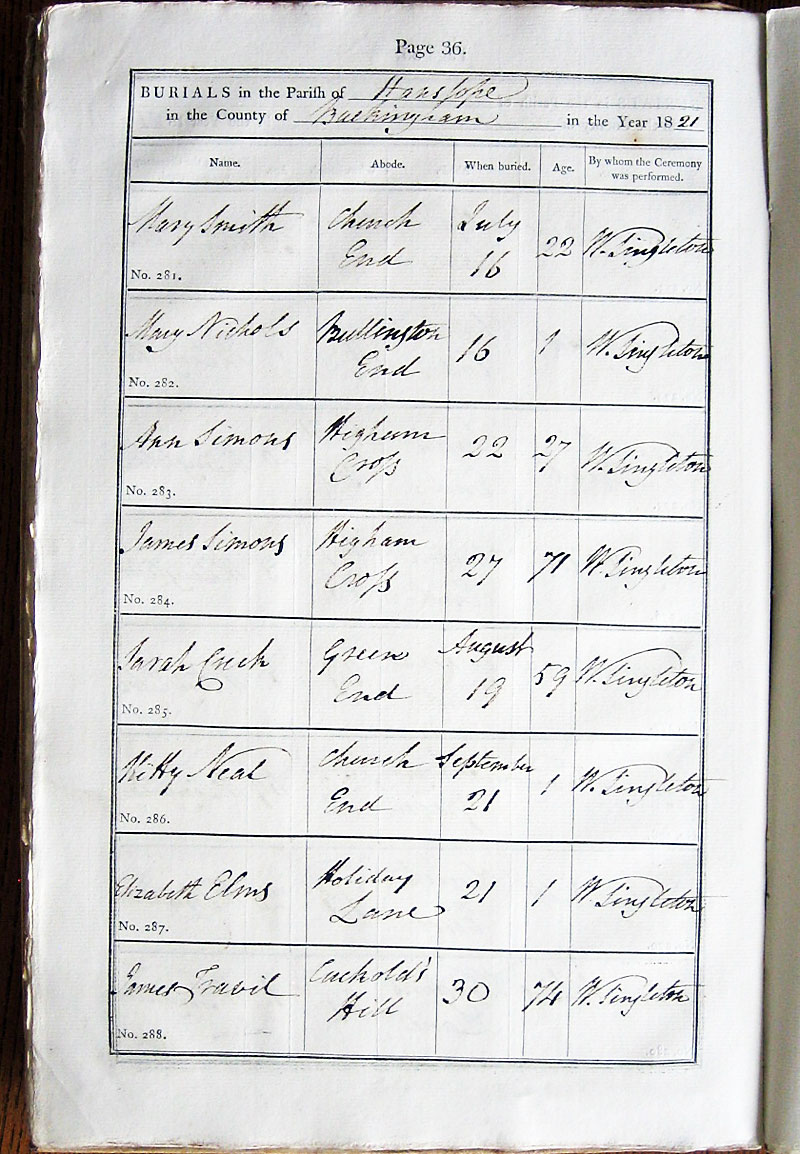 Page 36.
BURIALS in the Pariſh of Hanslope
in the County of Buckingham in the Year 18 21
Name. Abode. When buried. Age. By whom the Ceremony was performed.
Mary Smith Church July
End 16 22 W. Singleton
No. 281.
Mary Nichols Bullington
End 16 1 W. Singleton
No. 282.
Ann Simons Higham
Croſs 22 27 W. Singleton
No. 283.
James Simons Higham
Croſs 27 71 W. Singleton
No. 284.
Sarah Green August
End 19 59 W. Singleton
No. 285.
Kitty Neal Church September
End 21 1 W. Singleton
No. 286.
Elizabeth Elms Holiday
Lane 21 1 W. Singleton
No. 287.
James Travil Cuckold's
Hill 30 74 W. Singleton
No. 288.